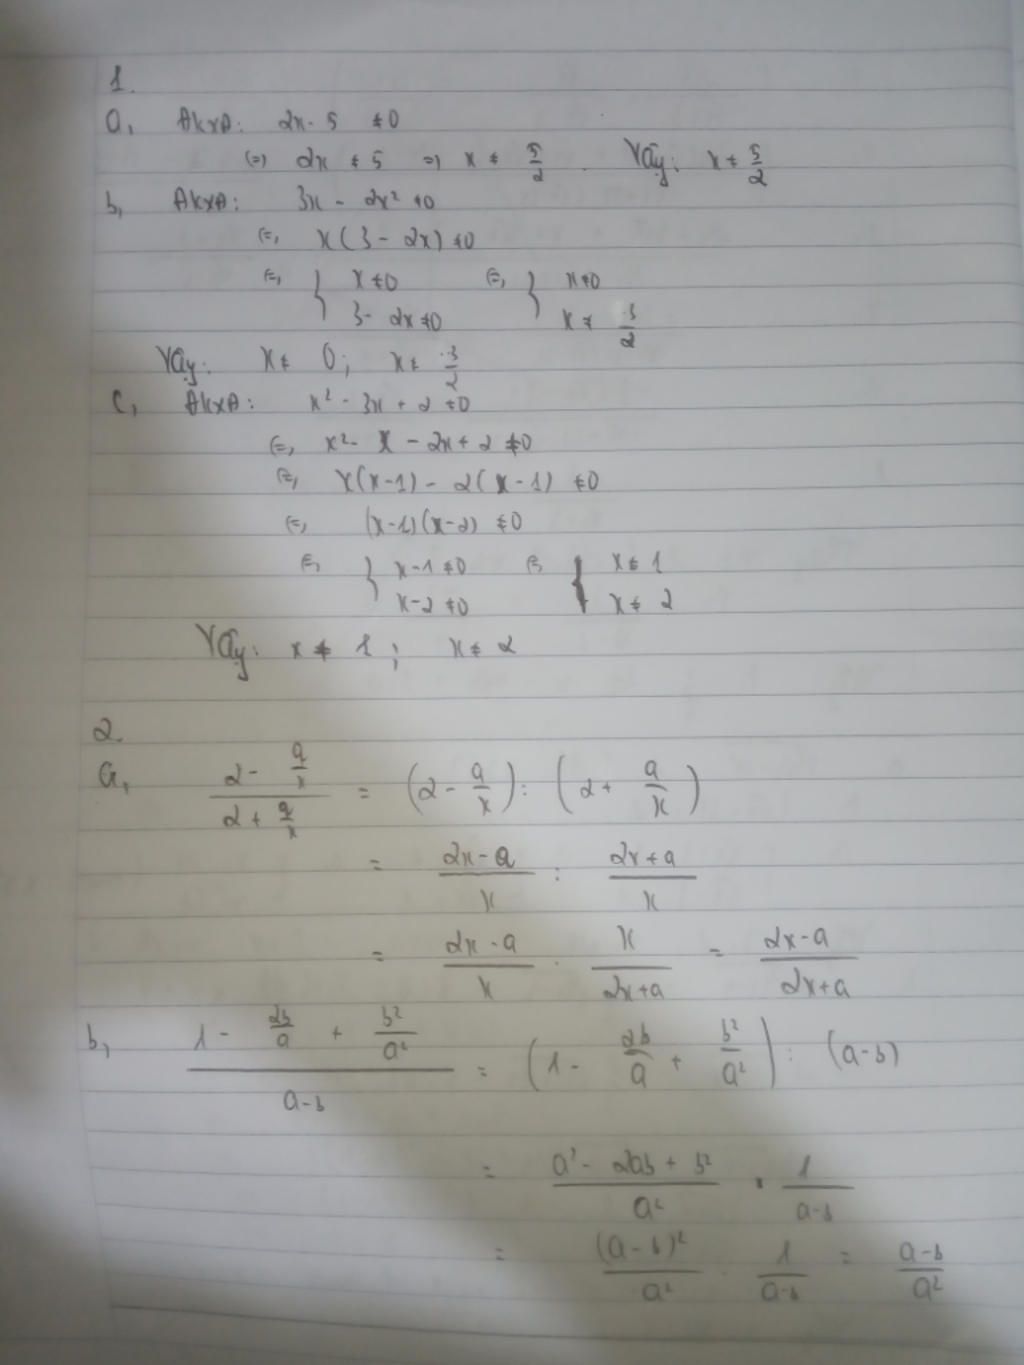 1.
a, ĐKXĐ: 2x - 5 ≠ 0
(=) 2x ≠ 5 =) x ≠ 5/2. Vậy: x ≠ 5/2
b, ĐKXĐ: 3x - 2x² ≠ 0
(=) x(3 - 2x) ≠ 0
(=) { x ≠ 0 (=) { x ≠ 0
3 - 2x ≠ 0 x ≠ 3/2
Vậy: x ≠ 0; x ≠ 3/2
c, ĐKXĐ: x² - 3x + 2 ≠ 0
(=) x² - x - 2x + 2 ≠ 0
(=) x(x-1) - 2(x-1) ≠ 0
(=) (x-1)(x-2) ≠ 0
(=) { x-1 ≠ 0 (=) { x ≠ 1
x-2 ≠ 0 x ≠ 2
Vậy: x ≠ 1; x ≠ 2
2.
a, (2 - a/x)/(2 + a/x) = (2 - a/x) : (2 + a/x)
= (2x-a)/x : (2x+a)/x
= (2x-a)/x . x/(2x+a) = (2x-a)/(2x+a)
b, (1 - 2b/a + b²/a²)/(a-b) = (1 - 2b/a + b²/a²) : (a-b)
= (a² - 2ab + b²)/a² . 1/(a-b)
= (a-b)²/a² . 1/(a-b) = (a-b)/a²